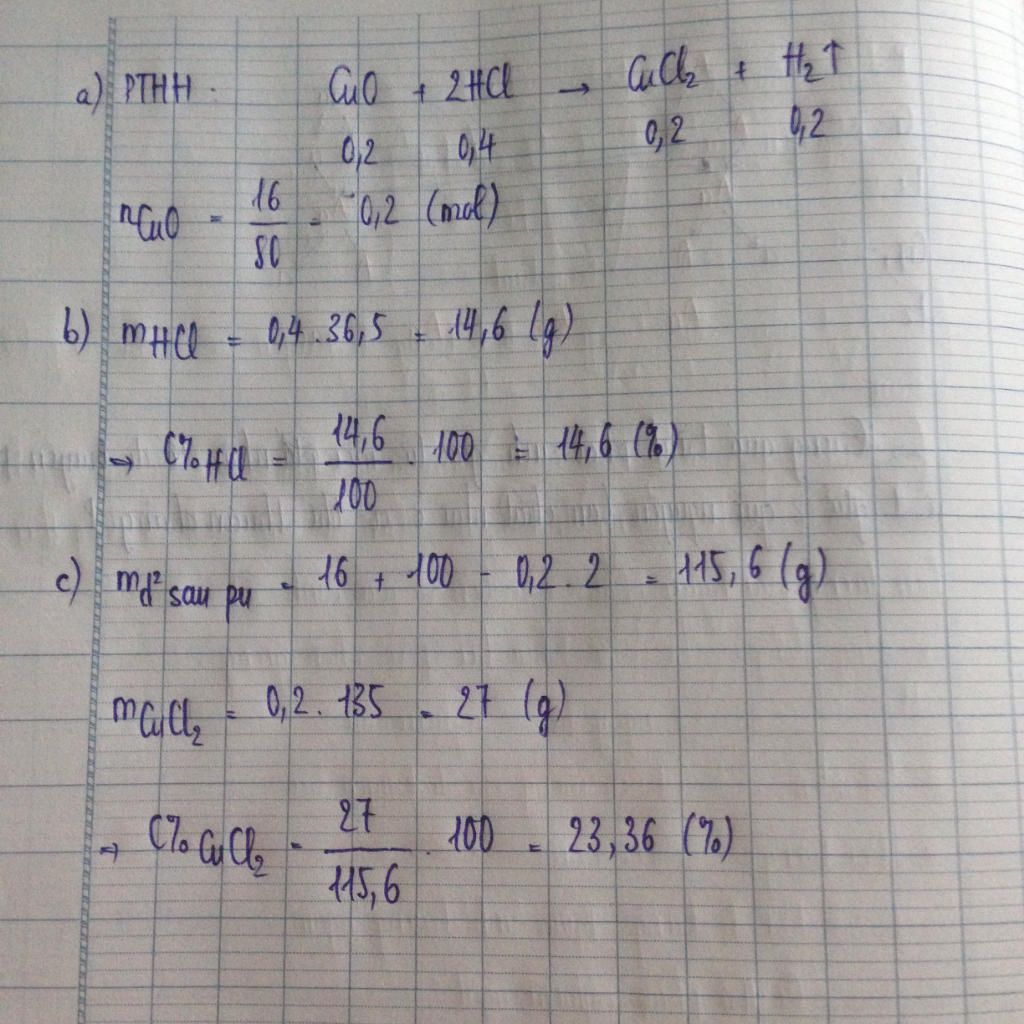 a) PTHH. CuO + 2HCl → CuCl₂ + H₂↑
0,2 0,4 0,2 0,2
nCuO = 16/80 = 0,2 (mol)
b) mHCl = 0,4.36,5 = 14,6 (g)
→ C%HCl = 14,6/100 . 100 = 14,6 (%)
c) md² sau pu = 16 + 100 - 0,2.2 = 115,6 (g)
mCuCl₂ = 0,2.135 = 27 (g)
→ C% CuCl₂ = 27/115,6 . 100 = 23,36 (%)